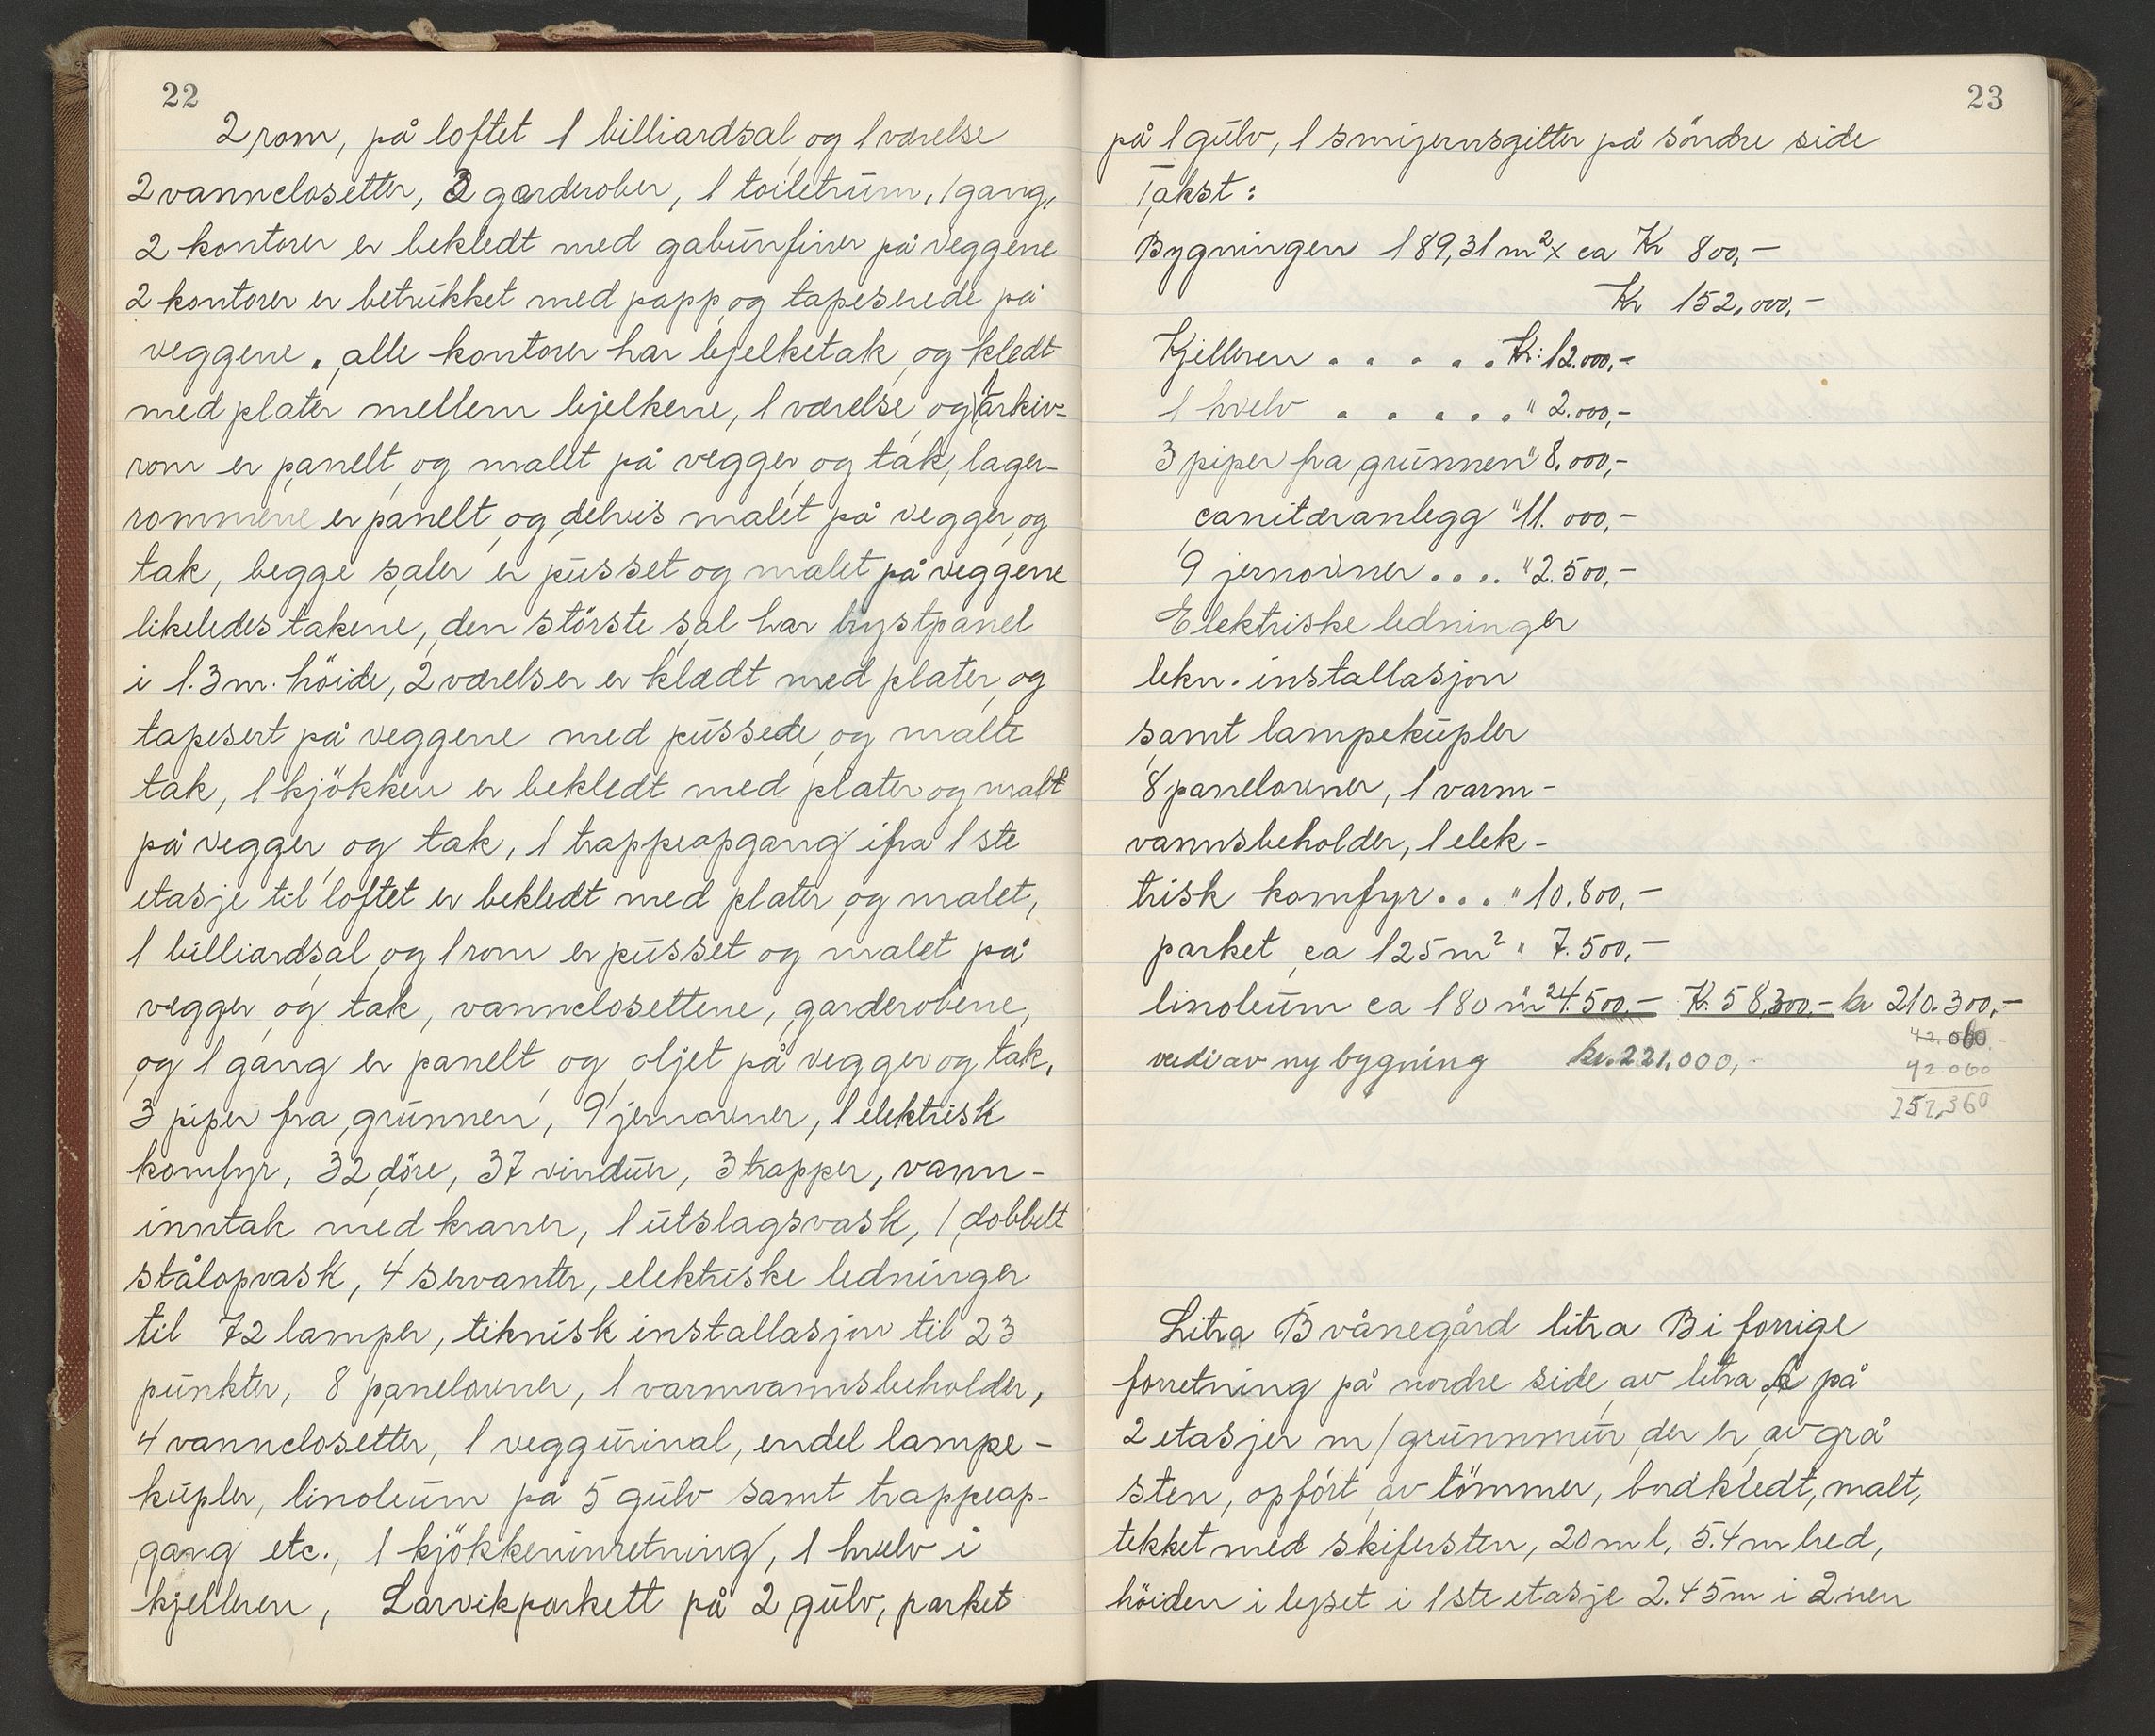 22
2 rom, på loftet 1 billiardsal og 1 værelse
2 vannclosetter, 2 garderober, 1 toiletrum, 1 gang,
2 kontorer er bekledt med gabunfiner på veggene
2 kontorer er betrukket med papp og tapeserede på
veggene. alle kontorer har bjelketak og kledt
med plater mellem bjelkene, 1 værelse og 1 arkiv-
rom er panelt og malt på vegger og tak, lager-
rommene er panelt og delvis malet på vegger og
tak, begge saler er pusset og malet på veggene
likeledes takene, den störste sal har brystpanel
i 1.3 m. höide, 2 værelser er klædt med plater og
tapesert på veggene med pussede og malte
tak, 1 kjökken er bekledt med plater og malt
på vegger og tak, 1 trappeopgang ifra 1 ste
etasje til loftet er bekledt med plater og malet,
1 billiardsal og 1 rom er pusset og malet på
vegger og tak, vannclosettene, garderobene,
og 1 gang er panelt og oljet på vegger og tak,
3 piper fra grunnen, 9 jernovner, 1 elektrisk
komfyr, 32 döre, 37 vinduer, 3 trapper, vann-
inntak med kraner, 1 utslagsvask, 1 dobbelt
stålopvask, 4 servanter, elektriske ledninger
til 72 lamper, teknisk installasjon til 23
punkter, 8 panelovner, 1 varmvannsbeholder,
4 vannclosetter, 1 veggurinal, endel lampe-
kupler, linoleum på 5 gulv samt trappeop-
gang etc., 1 kjökkeninnretning, 1 hvelv i
kjelleren, Larvikparkett på 2 gulv, parket
23
på 1 gulv, 1 smijernsgitter på söndre side
Takst:
Bygningen 189,31 m² x ca Kr 800,-
Kr 152.000,-
Kjelleren . . . . . Kr: 12.000,-
1 hvelv . . . . . " 2.000,-
3 piper fra grunnen " 8.000,-
sanitæranlegg " 11.000,-
9 jernovner . . . . " 2.500,-
Elektriske ledninger
tekn. installasjon
samt lampekupler
8 panelovner, 1 varm-
vannsbeholder, 1 elek-
trisk komfyr . . . . " 10.800,-
parket ca 125 m² " 7.500,-
linoleum ca 180 m² 4.500,- Kr. 58.300,- kr 210.300,-
42.060
verdi av ny bygning kr. 221.000,-
42 060
252,360
Litra B vånegård litra B i forrige
forretning på nordre side av litra A på
2 etasjer m/grunnmur der er av grå
sten, opfört av tömmer, bordkledt, malt,
tekket med skifersten, 20 m l, 5.4 m bred,
höiden i lyset i 1ste etasje 2.45 m i 2nen